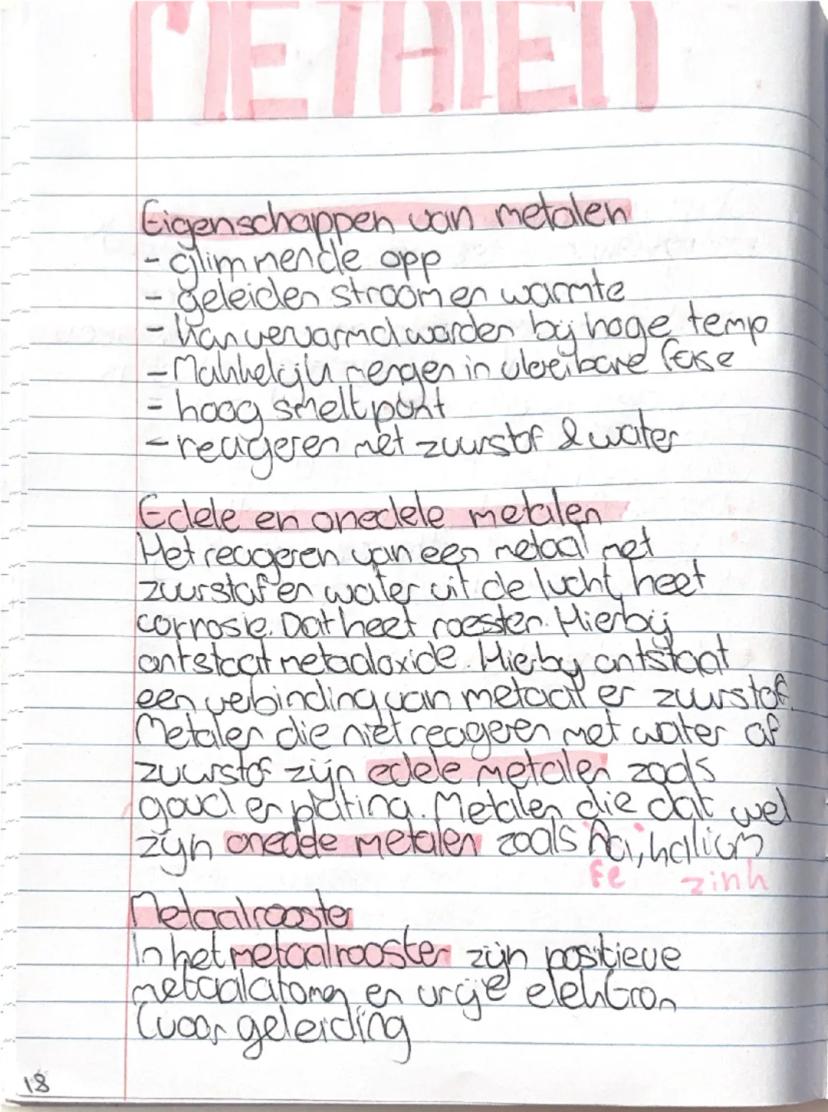 METALEN
Eigenschappen van metalen
- glimmende opp
- geleiden stroom en warmte
- kan vervormd worden bij hoge temp
- Makkelijk mengen in vloeibare fase
- hoog smeltpunt
- reageren met zuurstof & water
Edele en onedele metalen
Het reageren van een metaal met
zuurstof en water uit de lucht, heet
corrosie. Dat heet roesten. Hierbij
ontstaat metaaloxide. Hierby ontstaat
een verbinding van metaal en zuurstof.
Metalen die niet reageren met water of
zuurstof zijn edele metalen zoals
goud en plating. Metalen die dat wel
zijn onedele metalen zoals kalium
Fe zink
Metaalrooster
In het metaalrooster zijn positieve
metaalatomen en vrije elektron
(voor geleiding
18